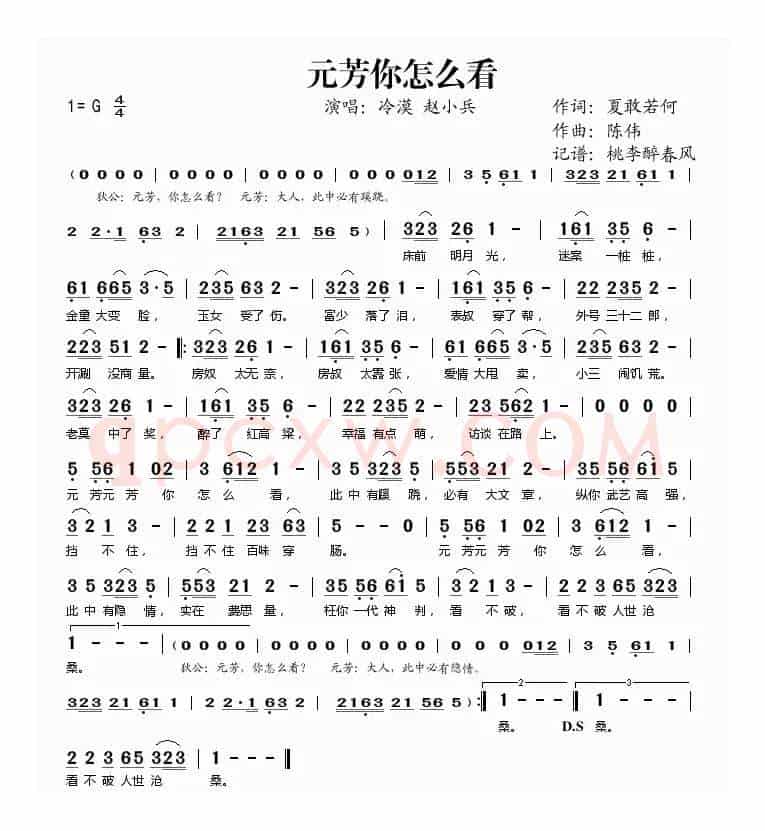 元芳你怎么看
1=G 4/4 演唱：冷漠 赵小兵 作词：夏敢若何
作曲：陈伟
记谱：桃李醉春风
(0 0 0 0 | 0 0 0 0 | 0 0 0 0 | 0 0 0 012 | 3 5 61 1 | 323 21 61 1 |
狄公：元芳，你怎么看？ 元芳：大人，此中必有蹊跷。
2 2·1 63 2 | 2163 21 56 5) | 323 26 1 - | 161 35 6 - |
床前 明月 光， 迷案 一桩 桩，
61 665 3·5 | 235 63 2 - | 323 26 1 - | 161 35 6 - | 61 665 35 3·5 |
金童 大变 脸， 玉女 受了 伤。 富少 落了 泪， 表叔 穿了 帮， 外号 三十二 郎，
223 51 2 - ‖: 323 26 1 - | 161 35 6 - | 61 665 3·5 | 235 63 2 - |
开涮 没商 量。 房奴 太无 奈， 房叔 太嚣 张， 爱情 大甩 卖， 小三 闹饥 荒。
323 26 1 - | 161 35 6 - | 22 235 2 - | 23 562 1 - | 0 0 0 0 |
老真 中了 奖， 醉了 红高 粱， 幸福 有点 萌， 访谈 在路 上。
qpcxw.COM
5 56 1 02 | 3 612 1 - | 35 323 5 - | 553 21 2 - | 35 56 61 5 |
元 芳元 芳 你 怎 么 看， 此 中 有蹊 跷， 必有 大文 章， 纵你 武艺 高 强，
3 2 1 3 - | 2 1 2 23 63 | 5 - - 0 | 5 56 1 02 | 3 612 1 - |
挡 不 住， 挡 不 住 百味 穿 肠。 元 芳元 芳 你 怎 么 看，
3 5 323 5 | 553 21 2 - | 35 56 61 5 | 3 2 1 3 - | 2 2 3 65 323 |
此 中 有隐 情， 实在 费思 量， 枉你 一代 神 判， 看 不 破， 看 不 破 人世 沧
1
1 - - - | (0 0 0 0 | 0 0 0 0 | 0 0 0 0 | 0 0 0 012 | 3 5 61 1 |
桑。 狄公：元芳，你怎么看？ 元芳：大人，此中必有隐情。
2 3
323 21 61 1 | 2 2·1 63 2 | 2163 21 56 5) :‖ 1 - - - ‖ 1 - - - |
桑。 D.S 桑。
2 2 3 65 323 | 1 - - - ‖
看 不 破 人世 沧 桑。